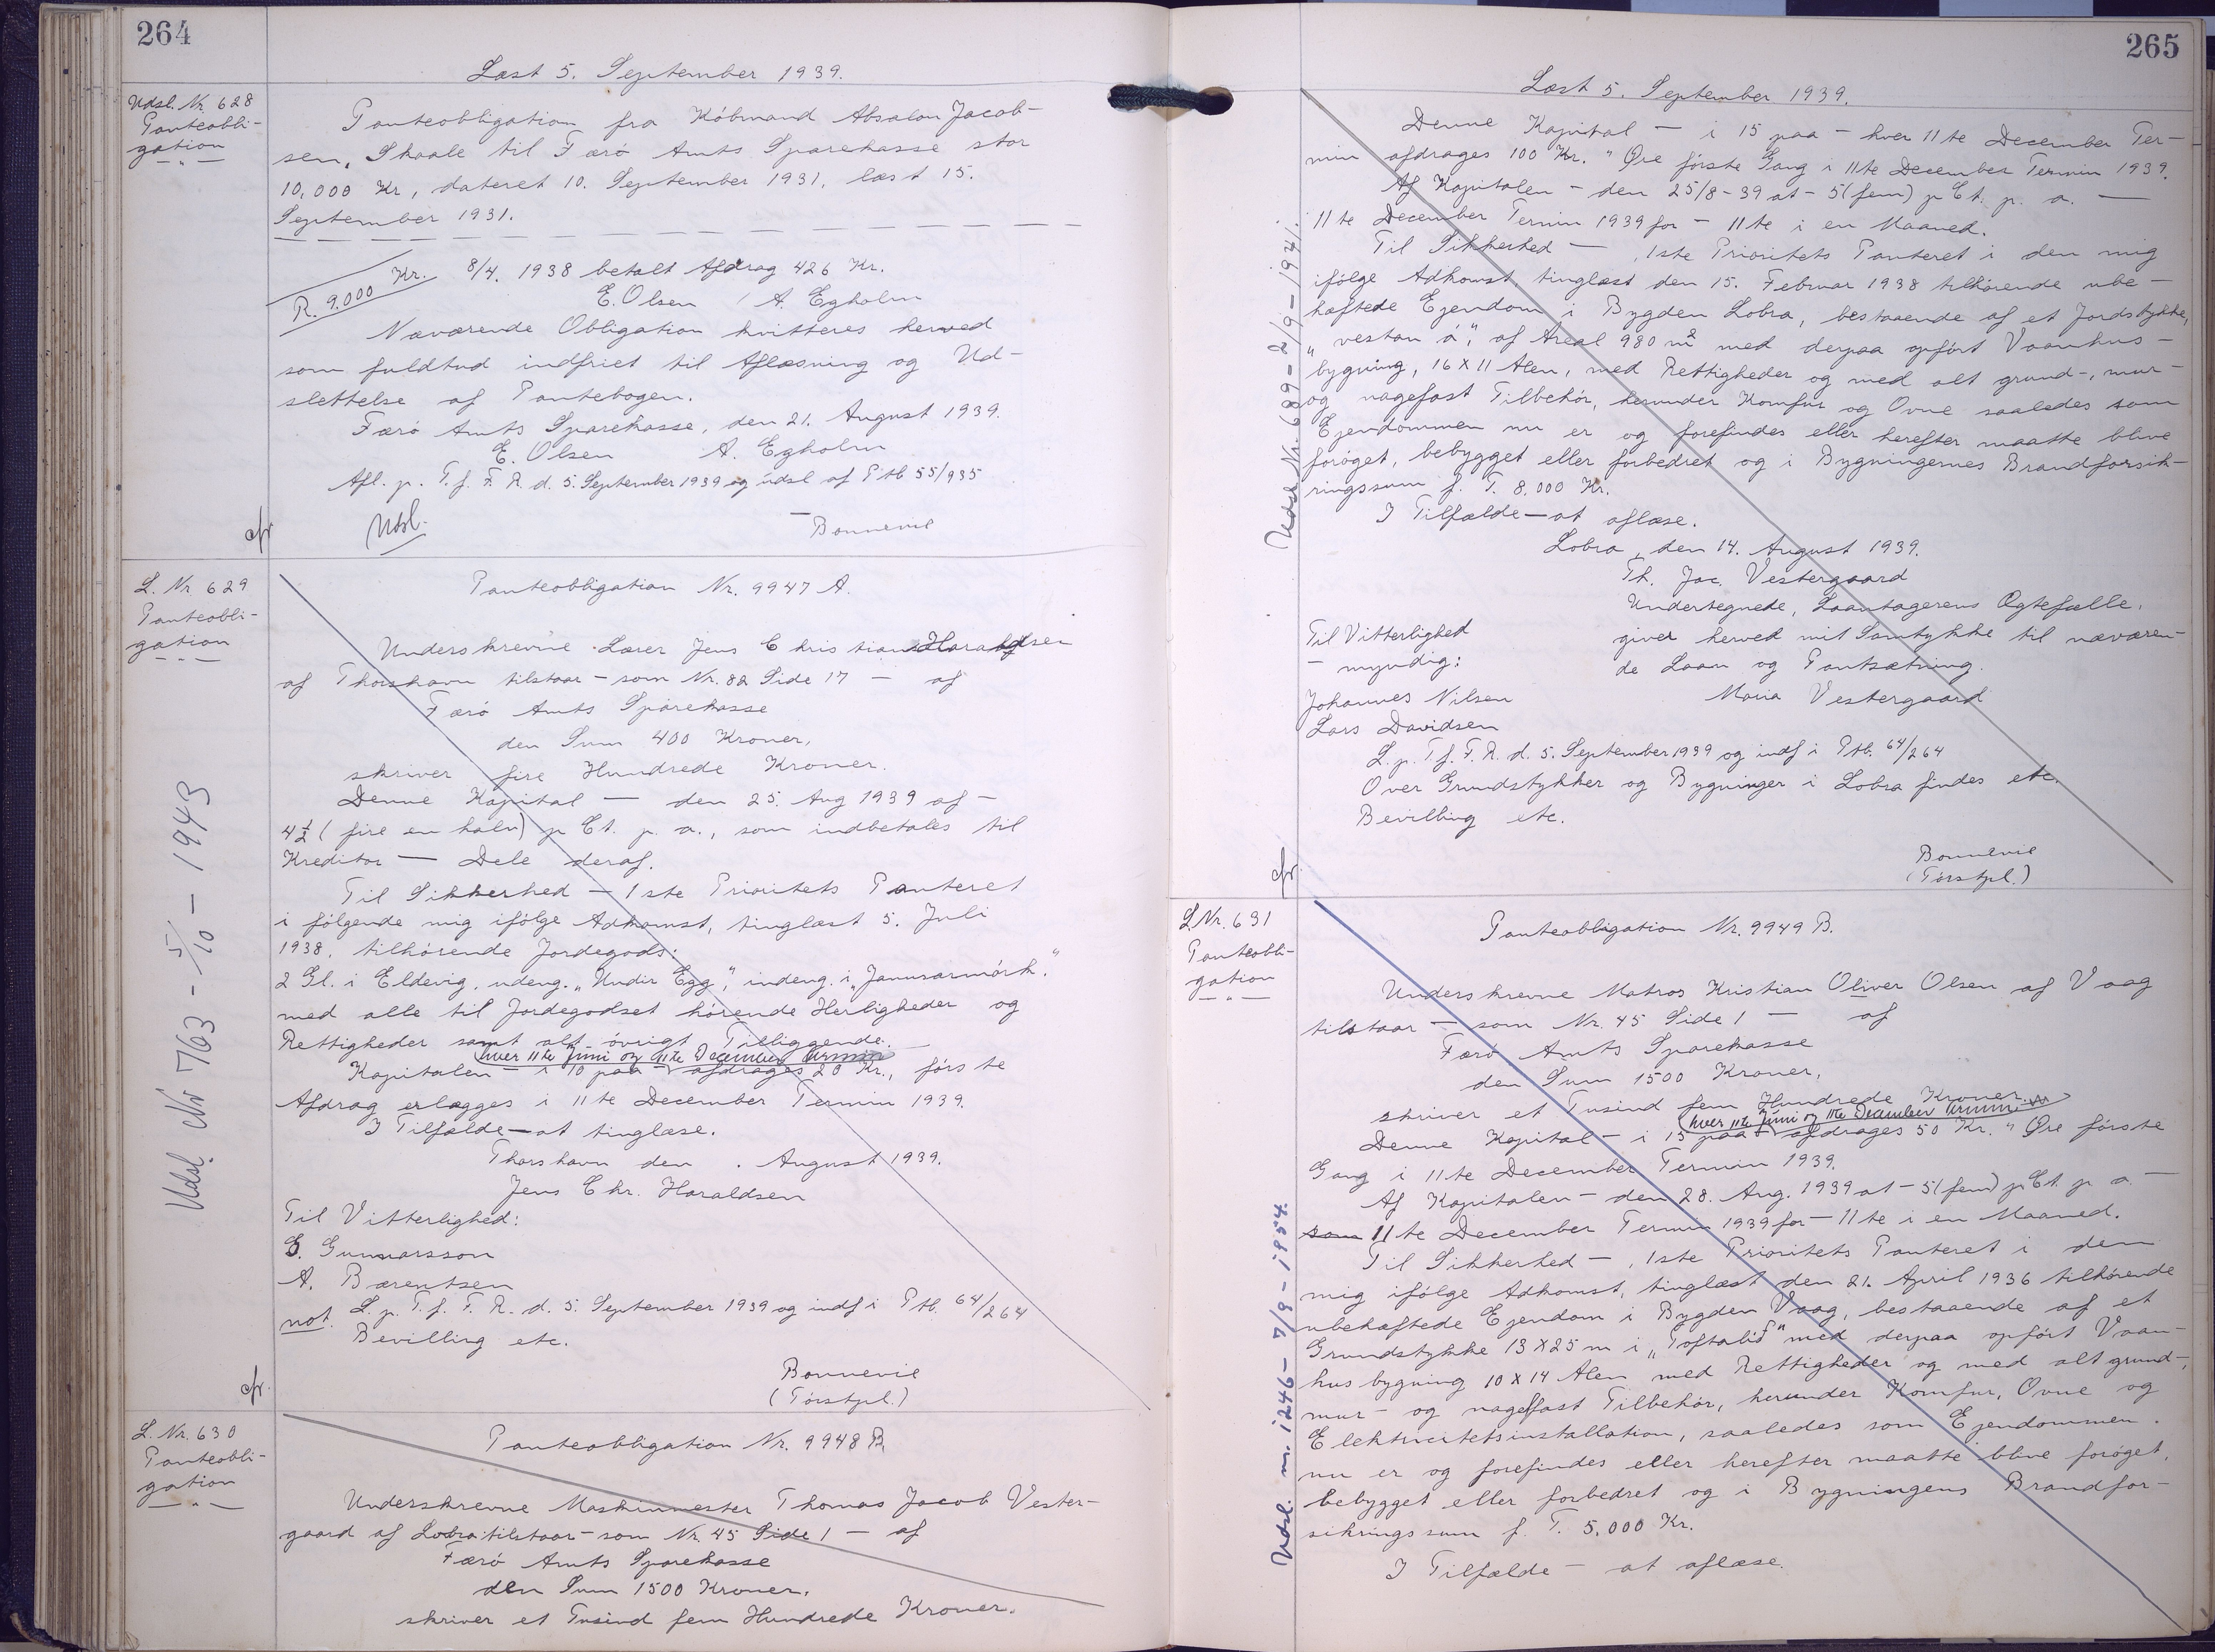 264
Læst 5. September 1939.
Udsl. Nr. 628
Panteobli-
gation
— " —
Panteobligation fra Købmand Absalon Jacob-
sen, Skaale til Færø Amts Sparekasse stor
10,000 Kr, dateret 10. September 1931, læst 15.
September 1931.
R. 9.000 Kr. 8/4. 1938 betalt Afdrag 426 Kr.
E. Olsen / A. Egholm
Næværende Obligation kvitteres herved
som fuldtud indfriet til Aflæsning og Ud-
slettelse af Pantebogen.
Færø Amts Sparekasse, den 21. August 1939.
E. Olsen A. Egholm
Afl. p. T. f. F. R. d. 5. September 1939 og udsl af Ptb 55/935
cfr Udsl. Bonnevie
L. Nr. 629
Panteobli-
gation
— " —
Udsl. Nr 763 - 5/10 - 1943
Panteobligation Nr. 9947 A.
Underskrevne Lærer Jens Christian Haraldsen
af Thorshavn tilstaar - som Nr. 82 Side 17 — af
Færø Amts Sparekasse
den Sum 400 Kroner,
skriver fire Hundrede Kroner.
Denne Kapital — den 25. Aug 1939 af -
4½ (fire en halv) p Ct. p. a., som indbetales til
Kreditor — Dele deraf.
Til Sikkerhed — 1ste Prioritets Panteret
i følgende mig ifølge Adkomst, tinglæst 5. Juli
1938, tilhørende Jordegods:
2 Gl. i Eldevig, udeng. „Undir Egg", indeng. i „Janusarmørk."
med alle til Jordegodset hørende Herligheder og
Rettigheder samt alt øvrigt Tilliggende.
hver 11te Juni og 11te December Termin
Kapitalen - i 10 paa - afdrages 20 Kr., første
Afdrag erlægges i 11te December Termin 1939.
I Tilfælde — at tinglæse.
Thorshavn den . August 1939.
Jens Chr. Haraldsen
Til Vitterlighed:
G. Gunnarsson
A. Bærentsen
not. L. p. T. f. F. R. d. 5. September 1939 og indf i Ptb. 64/264
Bevilling etc.
Bonnevie
cfr. (Torstpl.)
L. Nr. 630
Panteobli-
gation
— " —
Panteobligation Nr. 9948 B.
Underskrevne Maskinmester Thomas Jacob Vester-
gaard af Lobra tilstaar - som Nr. 45 Side 1 — af
Færø Amts Sparekasse
den Sum 1500 Kroner,
skriver et Tusind fem Hundrede Kroner.
265
Læst 5. September 1939.
Udsl. Nr. 689 - 2/9 - 1941.
Denne Kapital — i 15 paa - hver 11te December Ter-
min afdrages 100 Kr. " Øre første Gang i 11te December Termin 1939.
Af Kapitalen - den 25/8 - 39 at - 5 (fem) p Ct. p. a. —
11te December Termin 1939 for - 11te i en Maaned.
Til Sikkerhed — , 1ste Prioritets Panteret i den mig
ifølge Adkomst, tinglæst den 15. Februar 1938 tilhørende ube-
hæftede Ejendom i Bygden Lobra, bestaaende af et Jordstykke,
„vestan á", af Areal 980 m² med derpaa opført Vaanhus-
bygning, 16 X 11 Alen, med Rettigheder og med alt grund-, mur-
og nagefast Tilbehør, herunder Komfur og Ovne saaledes som
Ejendommen nu er og forefindes eller herefter maatte blive
forøget, bebygget eller forbedret og i Bygningernes Brandforsik-
ringssum f. T. 8.000 Kr.
I Tilfælde — at aflæse.
Lobra, den 14. August 1939.
Th. Jac. Vestergaard
Undertegnede, Laantagerens Ægtefælle,
Til Vitterlighed giver herved mit Samtykke til næværen-
— myndig: de Laan og Pantsætning.
Johannes Nilsen Maria Vestergaard
Lars Davidsen
L. p. T. f. F. R. d. 5. September 1939 og indf i Ptb. 64/264
Over Grundstykker og Bygninger i Lobra findes etc.
Bevilling etc.
Bonnevie
cfr. (Torstpl.)
L Nr. 631
Panteobli-
gation
— " —
Udsl. nr. 1246 - 7/9 - 1954.
Panteobligation Nr. 9949 B.
Underskrevne Matros Kristian Oliver Olsen af Vaag
tilstaar — som Nr. 45 Side 1 — af
Færø Amts Sparekasse
den Sum 1500 Kroner,
skriver et Tusind fem Hundrede Kroner.
hver 11te Juni og 11te December Termin
Denne Kapital - i 15 paa - afdrages 50 Kr. " Øre første
Gang i 11te December Termin 1939.
Af Kapitalen - den 28. Aug. 1939 at - 5 (fem) p Ct. p. a. —
som 11te December Termin 1939 for — 11te i en Maaned.
Til Sikkerhed — , 1ste Prioritets Panteret i den
mig ifølge Adkomst, tinglæst den 21. April 1936 tilhørende
ubehæftede Ejendom i Bygden Vaag, bestaaende af et
Grundstykke 13 X 25 m i „Toftalið" med derpaa opført Vaan-
husbygning 10 X 14 Alen med Rettigheder og med alt grund-,
mur- og nagelfast Tilbehør, herunder Komfur, Ovne og
Elektricitetsinstallation, saaledes som Ejendommen
nu er og forefindes eller herefter maatte blive forøget,
bebygget eller forbedret og i Bygningens Brandfor-
sikringssum f. T. 5,000 Kr.
I Tilfælde — at aflæse.